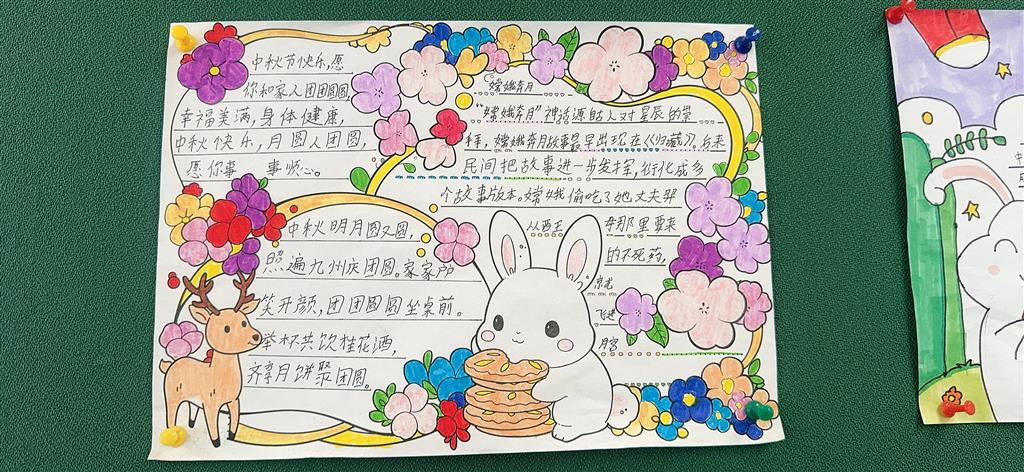 中秋节快乐,愿
你和家人团团圆圆,
幸福美满,身体健康,
中秋快乐,月圆人团圆,
愿你事 事顺心。
中秋明月圆又圆,
照遍九州庆团圆。家家户户
笑开颜,团团圆圆坐桌前。
举杯共饮桂花酒,
齐享月饼聚团圆。
嫦娥奔月
“嫦娥奔月”神话源自古人对星辰的崇
拜,嫦娥奔月故事最早出现在《归藏》,后来
民间把故事进一步发挥,衍化成多
个故事版本。嫦娥偷吃了她丈夫羿
从西王 母那里要来
的不死药,
飞进
月宫